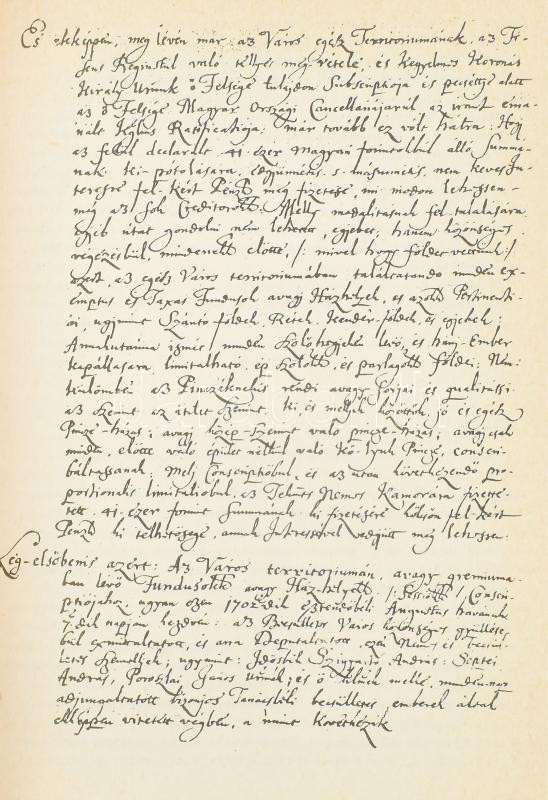 És eképpen, meg lévén már az Város egész Territoriumának, az Fi-
scus Regiustul való teljes meg-vétele, és Kegyelmes Koronás
Király Urunk ő Felsége tulajdon Subscriptiója és pecséttye alatt
az ő Felsége Magyar Országi Cancellariájárúl az iránt ema-
nált Ratificatiója: már tovább ez vólt hátra: Hogy
az felűl declarált 41 ezer Magyar forintokbúl álló summá-
nak ki-pótolására, nem keves In-
teresre fel-kért Pénz meg fizetése, mi módon lehessen-
még az Sok Creditoroktúl: Melly modalitásnak fel-találására
egyéb útat gondolni nem lehetett, egyebet, hanem közönséges
végezésbül, mindenek előtte, /: mivel hogy földet vettünk :/
azért, az egész Város territoriumában találtatandó minden ex-
emptus és Taxás Fundusok avagy Házhelyek, és azoknak Pertinenti-
ái, ugymint Szántó földek, Rétek, Kender-földek, és egyebek:
minden Szőlőhegyekén lévő, és hány Ember
kapállására limitálható, ép Szőlők, és parlagok földei; Nem
külömben az Pinczéknek is rendi avagy sorjai és qualitássi
az szerint az itélet szerint, ki, és mellyek közöttök, jó és egész
Pincze-házas; avagy közép-szerint való pincze-házas; avagy csak
minden előtte való épület nélkül való Pincze, conscri-
báltassanak: Mely Conscriptiobúl, és az után következendő pro-
portionalis limitatiobúl, az Tekintetes Nemes Kamorára fizette-
tett 41 ezer forint Summának ki fizetésére költsön fel-kért
Pénz ki telhetősége, annak Interessével együtt meg lehessen:
Leg-elsőbenis azért: Az Város territoriumán, avagy gremiumá-
ban lévő Fundusoknak avagy Ház-helyeknek /: :/ Conscri-
ptiójához, ugyan ezen 1702dik esztendőbéli Augustus havának
7dik napján kezdvén: az Becsülletes Város közönséges gyűlésé-
bűl exmittáltatott, és arra Deputáltatott, ezen Nemes és becsül-
letes személlyek; ugymint: Szigyártó András: Septei
András, Poroszlai János Uraimék; és ő kelmék mellé, minden
adjungáltatott bizonyos Tanácsbéli becsülletes emberek által
eképpen vitetett végben, a mint következik